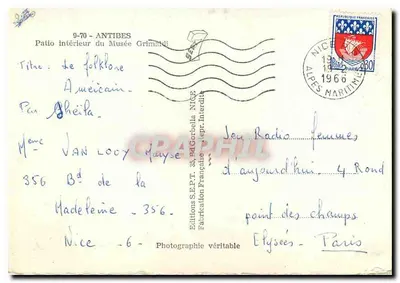 9-70 - ANTIBES
Patio intérieur du Musée Grimaldi
Titre: Le folklore
Américain.
Par Sheila.
Mme VAN LOOY Maryse
356 Bd de la
Madeleine - 356.
Nice - 6 -
Editions S.E.P.T. 35, Bd Gorbella NICE
Fabrication Française Repr. Interdite
SEPT
REPUBLIQUE FRANÇAISE
0,30
NICE
19
1966
ALPES MARITIMES
Jeu Radio femmes
d'aujourd'hui. 4 Rond
point des champs
Elysées. Paris
Photographie véritable